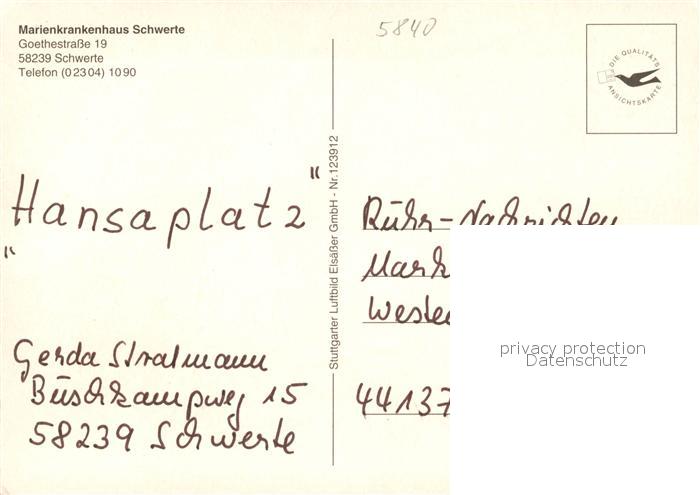 Marienkrankenhaus Schwerte
Goethestraße 19
58239 Schwerte
Telefon (0 23 04) 10 90
5840
DIE QUALITÄTS
ANSICHTSKARTE
„Hansaplatz“
Gerda Stratmann
Buschkampweg 15
58239 Schwerte
Stuttgarter Luftbild Elsäßer GmbH - Nr.123912
Ruhr-Nachrichten
Mark
Weste
44137
privacy protection
Datenschutz